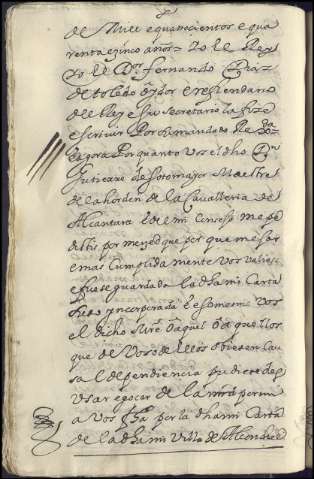 de Mill e quatrocientos e qua
renta y cinco años = Yo el Rey
Yo el Dor fernando Diaz
de toledo oydor e refrendario
del Rey e su secretario la fize
escrivir Por su mandado Re
Por quanto vos el dho Dn
Gutierre de sotomayor Maestre
de la horden de la Cavalleria de
Alcantara e de mi Consejo me pe
distis por merced que por que mejor
e mas Cumplida mente vos valiese
e fuese guardada la dha mi Carta
yncorporada
el dicho o aquel o aquellos
que de Vos o de Ellos obiesen Cau
sa
usar e goçar de la mrd por mi
a vos fha por la dha mi Carta
de la dha mi Villa de Alconchel